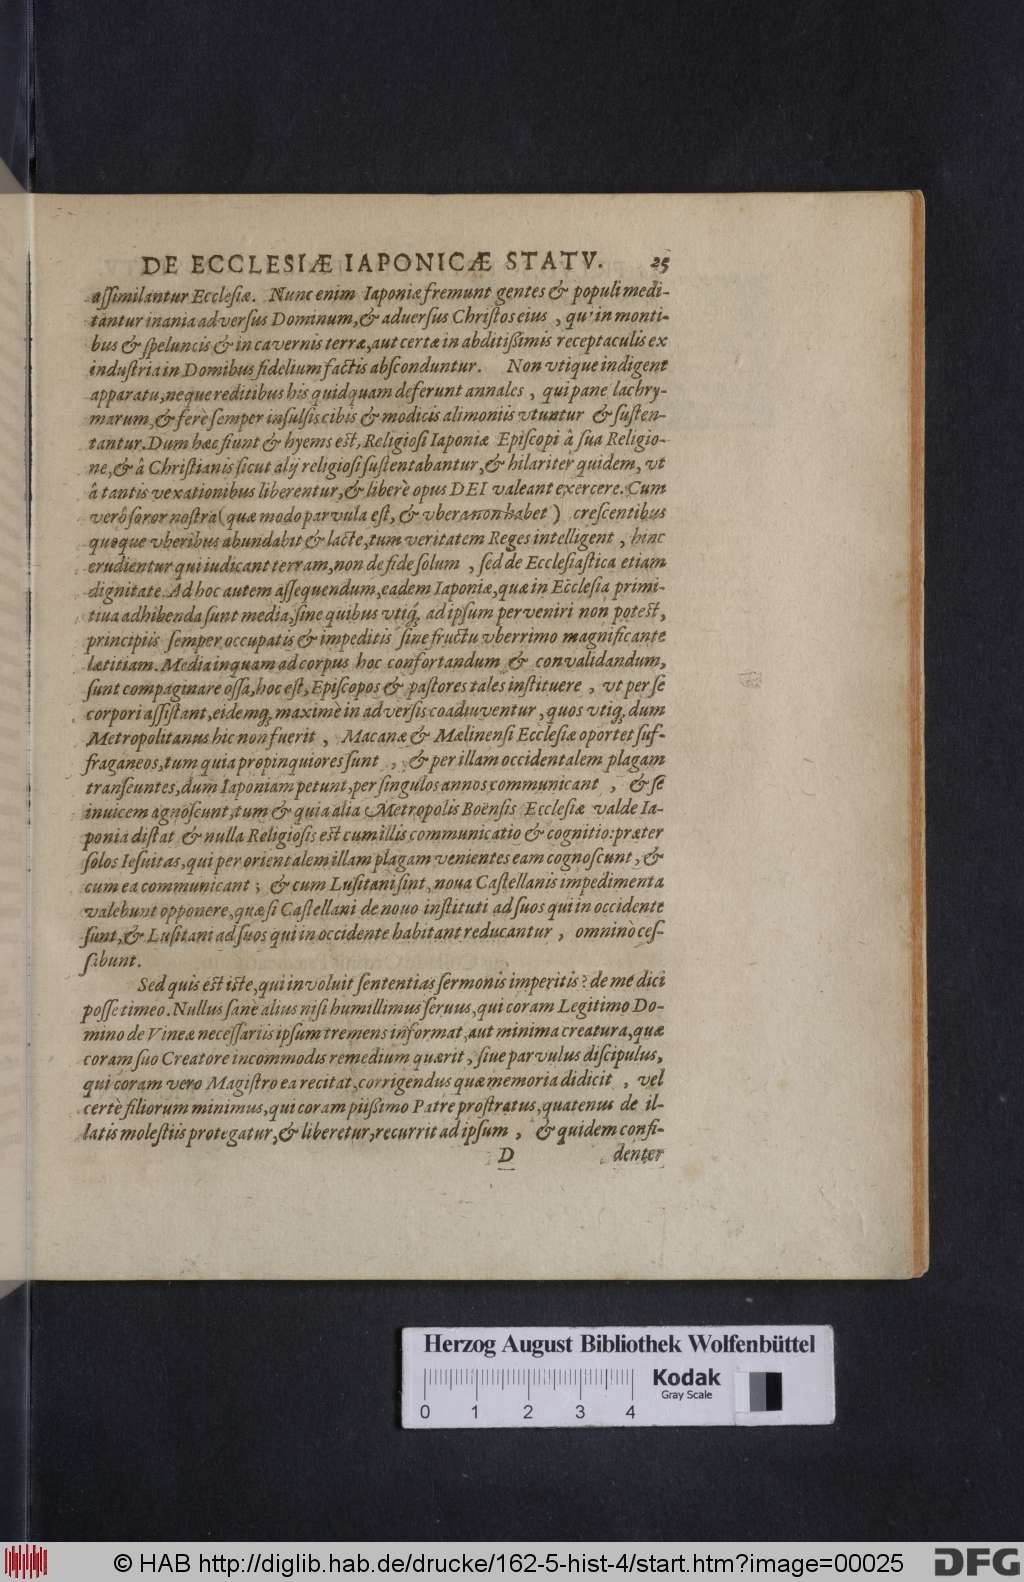 DE ECCLESIÆ IAPONICÆ STATV. 25
aſſimilantur Eccleſiæ. Nunc enim Iaponiæ fremunt gentes & populi medi-
tantur inania adverſus Dominum, & aduerſus Chriſtos eius, qui in monti-
bus & ſpeluncis & in cavernis terræ, aut certæ in abditiſſimis receptaculis ex
induſtria in Domibus fidelium factis abſconduntur. Non vtique indigent
apparatu, neque reditibus his quidquam deferunt annales, qui pane lachry-
marum, & ferè ſemper inſulſis cibis & modicis alimoniis vtuntur & ſuſten-
tantur. Dum hæc fiunt & hyems eſt, Religioſi Iaponiæ Epiſcopi â ſua Religio-
ne, & â Chriſtianis ſicut alij religioſi ſuſtentabantur, & hilariter quidem, vt
â tantis vexationibus liberentur, & liberè opus DEI valeant exercere. Cum
verô ſoror noſtra (quæ modo parvula eſt, & vbera non habet) creſcentibus
quoque vberibus abundabit & lacte, tum veritatem Reges intelligent, hinc
erudientur qui iudicant terram, non de fide ſolum, ſed de Eccleſiaſtica etiam
dignitate. Ad hoc autem aſſequendum, eadem Iaponiæ, quæ in Eccleſia primi-
tiua adhibenda ſunt media, ſine quibus vtiq; ad ipſum perveniri non poteſt,
principiis ſemper occupatis & impeditis ſine fructu vberrimo magnificante
lætitiam. Media inquam ad corpus hoc confortandum & convalidandum,
ſunt compaginare oſſa, hoc eſt, Epiſcopos & paſtores tales inſtituere, vt per ſe
corpori aſſiſtant, eidemq; maximè in adverſis coadiuventur, quos vtiq; dum
Metropolitanus hic non fuerit, Macanæ & Mælinenſi Eccleſiæ oportet ſuf-
fraganeos, tum quia propinquiores ſunt, & per illam occidentalem plagam
tranſeuntes, dum Iaponiam petunt, per ſingulos annos communicant, & ſe
inuicem agnoſcunt, tum & quia alia Metropolis Boënſis Eccleſiæ valde Ia-
ponia diſtat & nulla Religioſis eſt cum illis communicatio & cognitio: præter
ſolos Ieſuitas, qui per orientalem illam plagam venientes eam cognoſcunt, &
cum ea communicant; & cum Luſitani ſint, noua Caſtellanis impedimenta
valebunt opponere, quæ ſi Caſtellani de nouo inſtituti ad ſuos qui in occidente
ſunt, & Luſitani ad ſuos qui in occidente habitant reducantur, omninò ceſ-
ſabunt.
Sed quis eſt iſte, qui involuit ſententias ſermonis imperitis? de me dici
poſſe timeo. Nullus ſanè alius niſi humillimus ſeruus, qui coram Legitimo Do-
mino de Vineæ neceſſariis ipſum tremens informat, aut minima creatura, quæ
coram ſuo Creatore incommodis remedium quærit, ſiue parvulus diſcipulus,
qui coram vero Magiſtro ea recitat, corrigendus quæ memoria didicit, vel
certè filiorum minimus, qui coram piiſſimo Patre proſtratus, quatenus de il-
latis moleſtiis protegatur, & liberetur, recurrit ad ipſum, & quidem confi-
D denter
Herzog August Bibliothek Wolfenbüttel
Kodak
Gray Scale
0 1 2 3 4
© HAB http://diglib.hab.de/drucke/162-5-hist-4/start.htm?image=00025
DFG